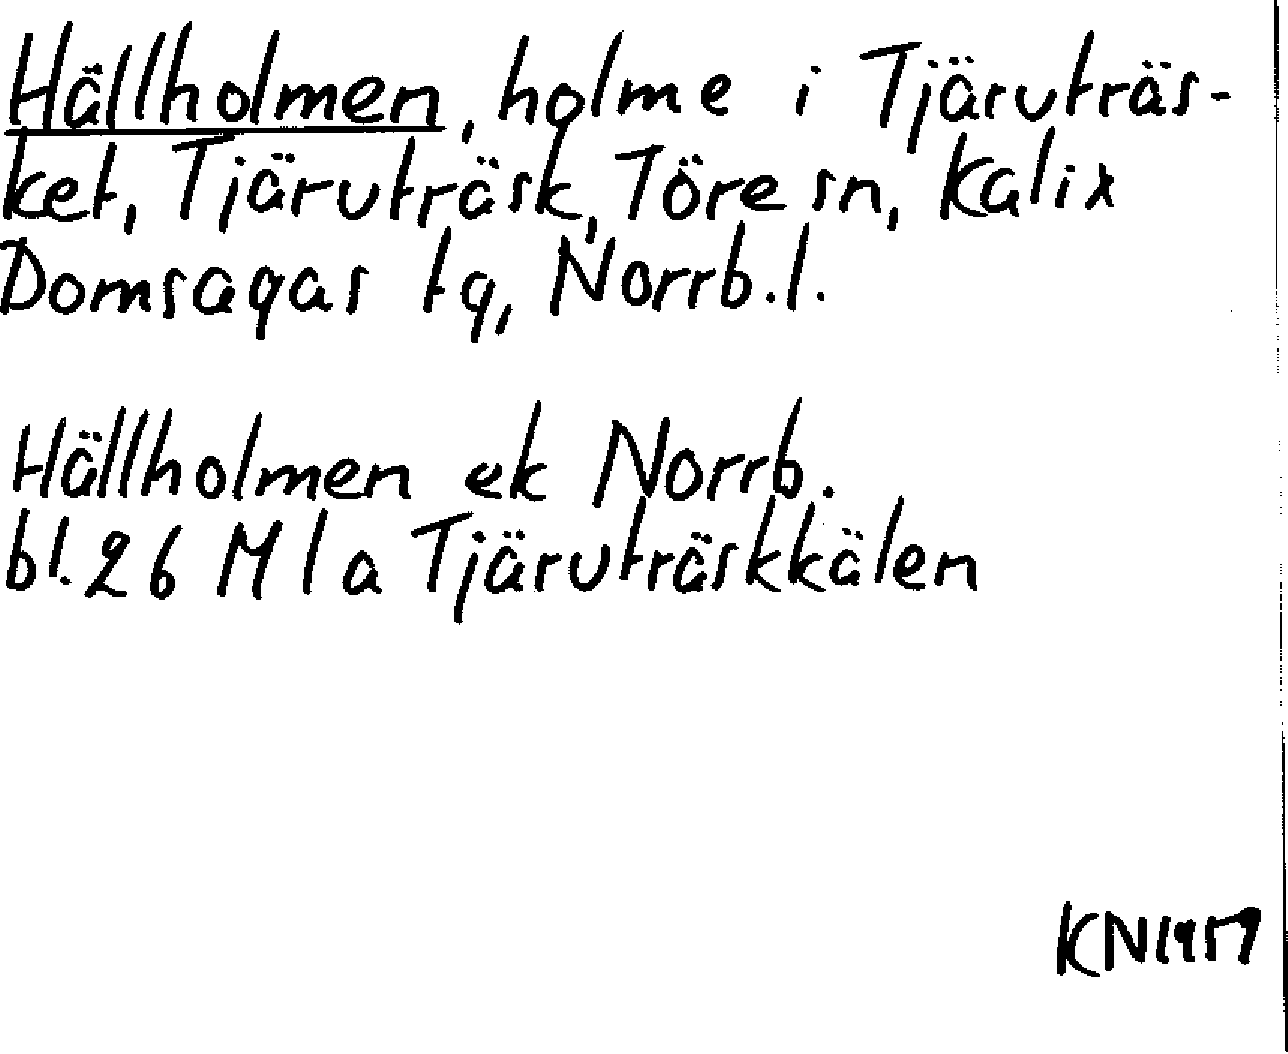 Hällholmen, holme i Tjäruträs-
ket, Tjäruträsk, Töre sn, Kalix
Domsagas tg, Norrb.l.
Hällholmen ek Norrb.
bl. 26 M l a Tjäruträskkälen
KN 1959